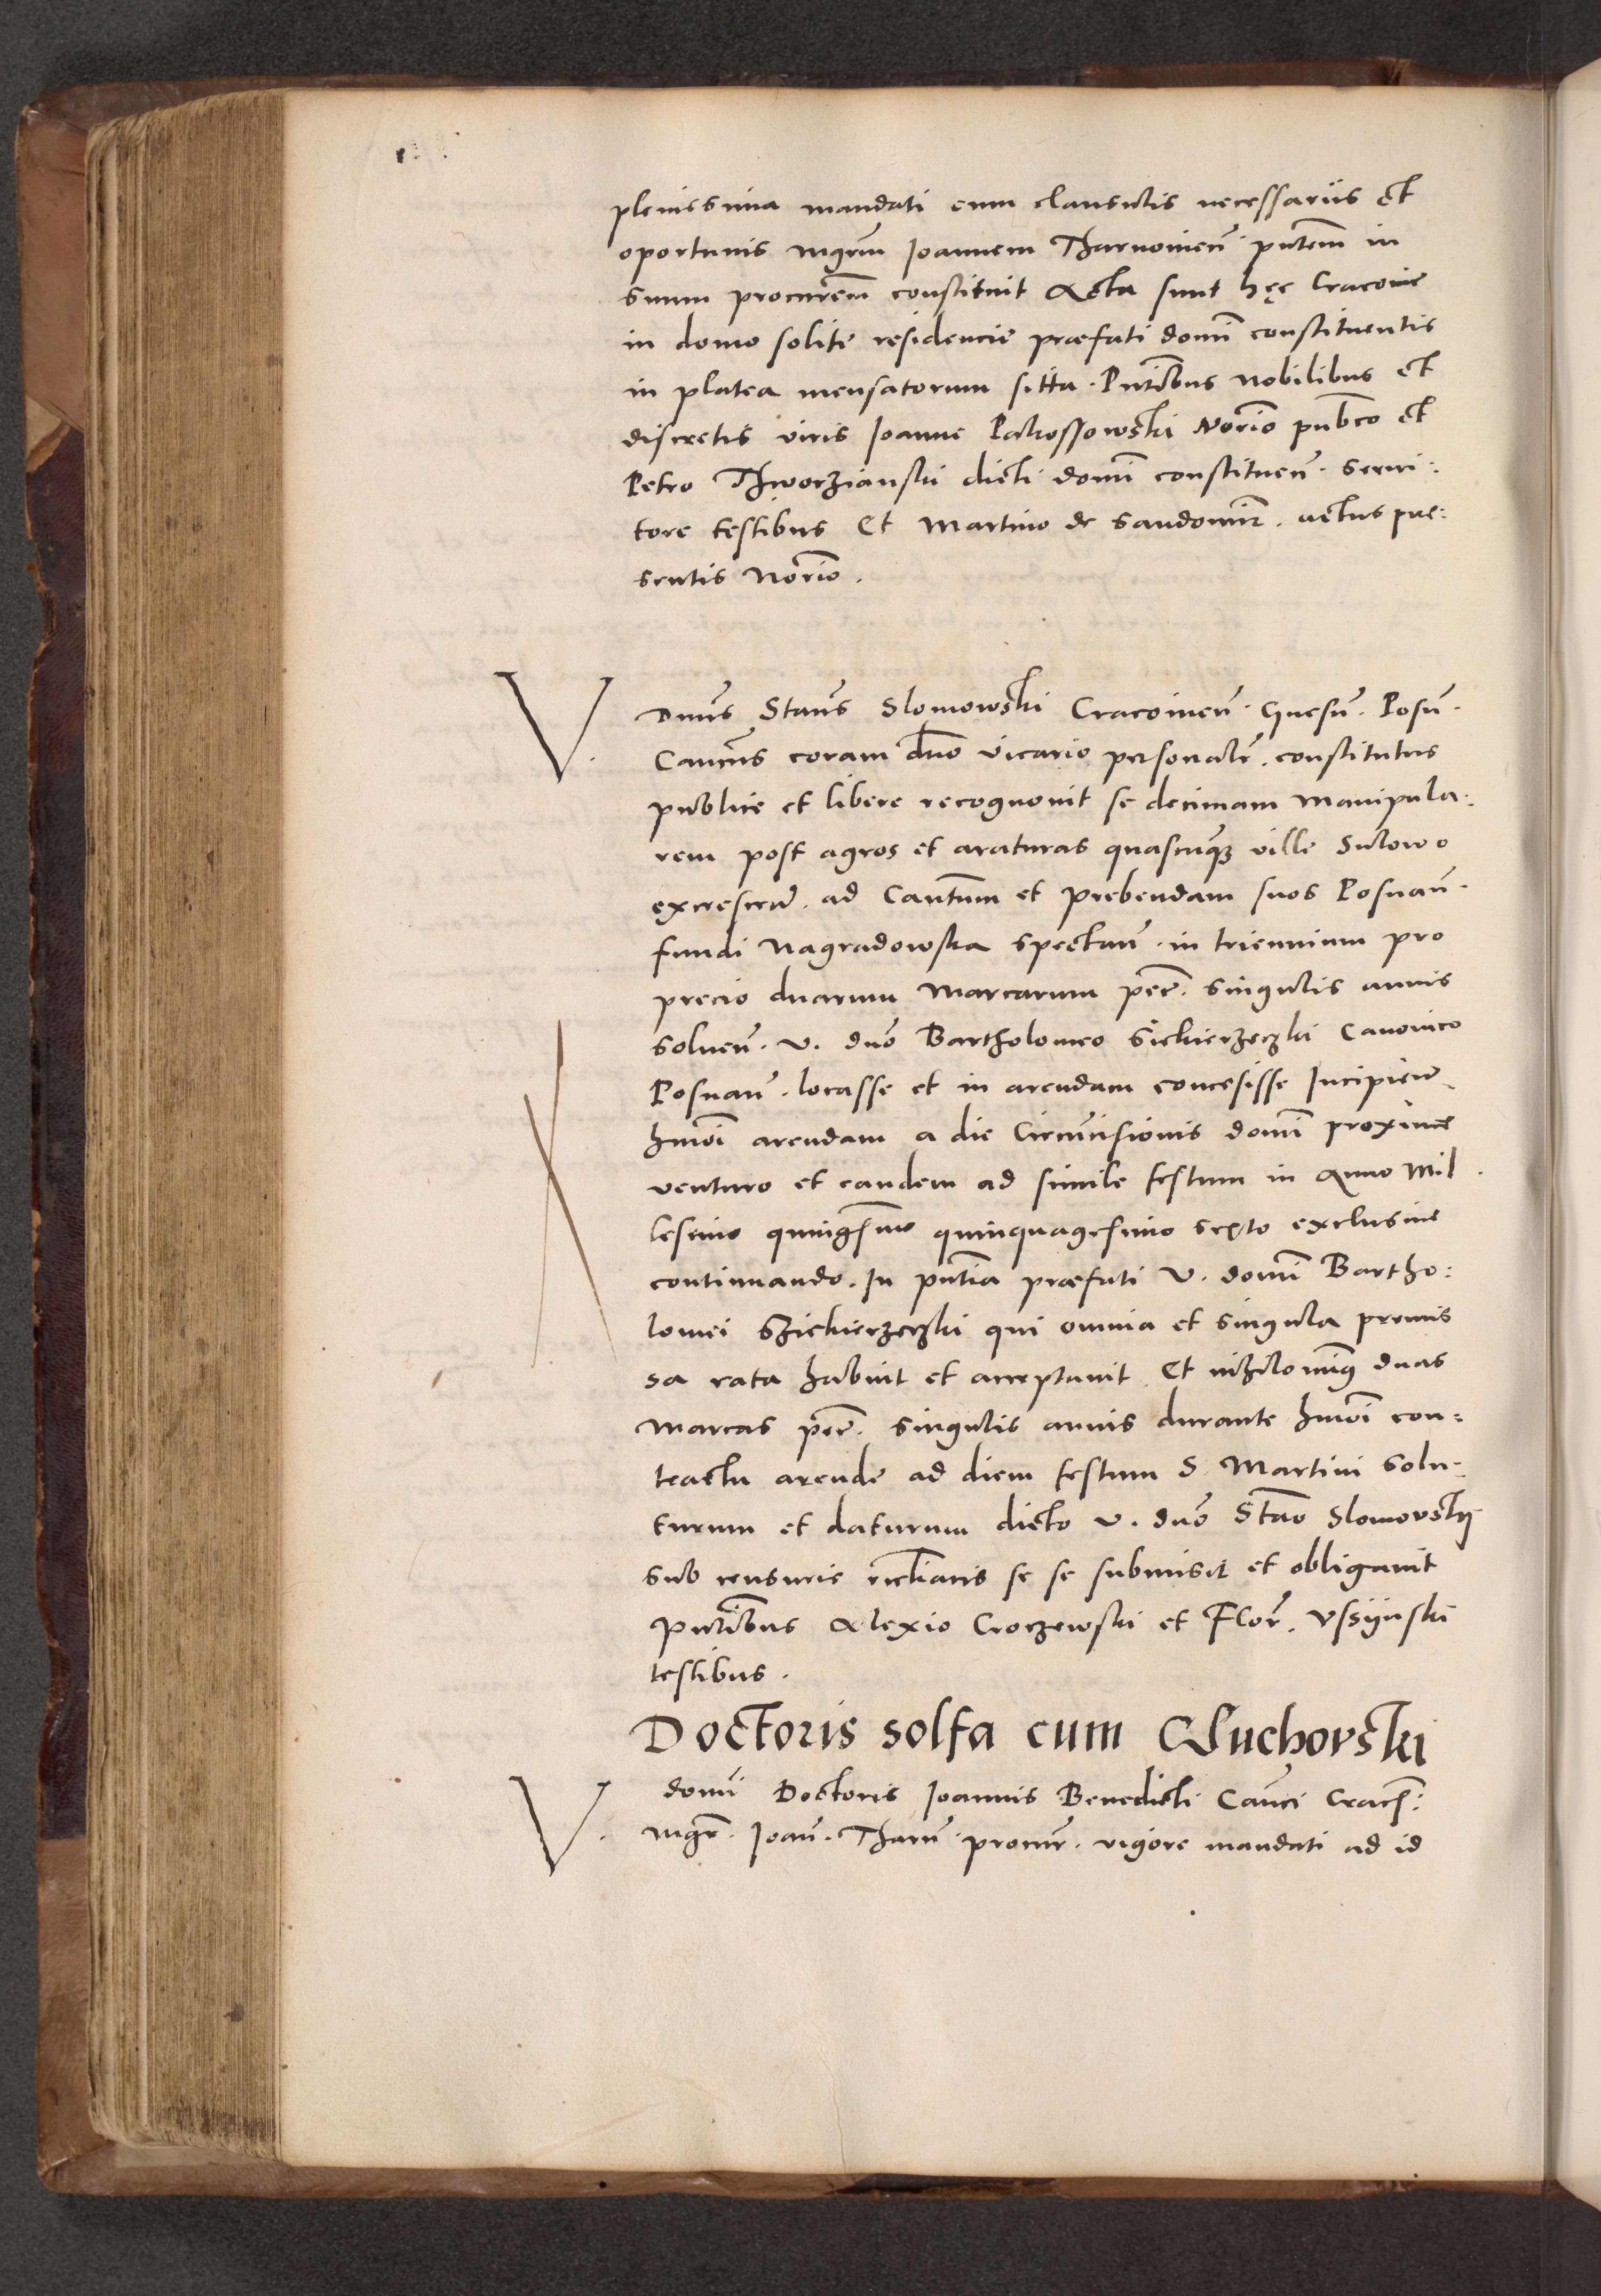 plenissima mandati cum clausulis necessariis et
oportunis mgrm Joannem Tharnovien̄. pn̄tem in
suum procurem̄ constituit Acta sunt hęc Cracovie
in domo solite residencie præfati domi constituentis
in platea mensatorum sitta. Pn̄tibus nobilibus et
discretis viris Joanne Pakossowski Norio pub̄co et
Petro Thworzianski dicti domi constituen̄. servi:
tore testibus Et Martino de Sandomir. actus præ:
sentis Norio.
V. Dnus Staus Slomowski Cracovien̄. Gnesn̄. Posn̄.
Cancus coram dno vicario personalr̄. constitutus
publice et libere recognovit se decimam manipula:
rem post agros et araturas quascunq3 ville Sulowo
excrescen̄. ad Can̄tum et prebendam suos Posnan̄.
fundi Nagradowska spectan̄. in triennium pro
precio duarum marcarum pec̄. singulis annis
solven̄. v. dno Bartholomeo Siekierzeczki Canonico
Posnan̄. locasse et in arendam concesisse Incipien̄
hmoi arendam a die Circumcisionis domi proxime
venturo et eandem ad simile festum in Anno Mil
lesimo quinges̄imo quinquagesimo sexto exclusive
continuando. In pn̄tia præfati V. domi Bartho:
lomei Sziekierzeczki qui omnia et singula premis
sa rata habuit et acceptavit. Et nihilominq duas
marcas pec̄. singulis annis durante hmoi con:
tractu arende ad diem festum S. Martini solu:
turum et daturum dicto v. dno Stao Slomovskij
sub censuris eccliacis se se submisit et obligavit
pn̄tibus Alexio Croczewski et Flor̄. Vssijnski
testibus.
Doctoris solfa cum Cluchovski
V. domi Doctoris Joannis Benedicti Canci Crac:
mgr̄. Joan̄. Tharn̄. procur̄. vigore mandati ad id